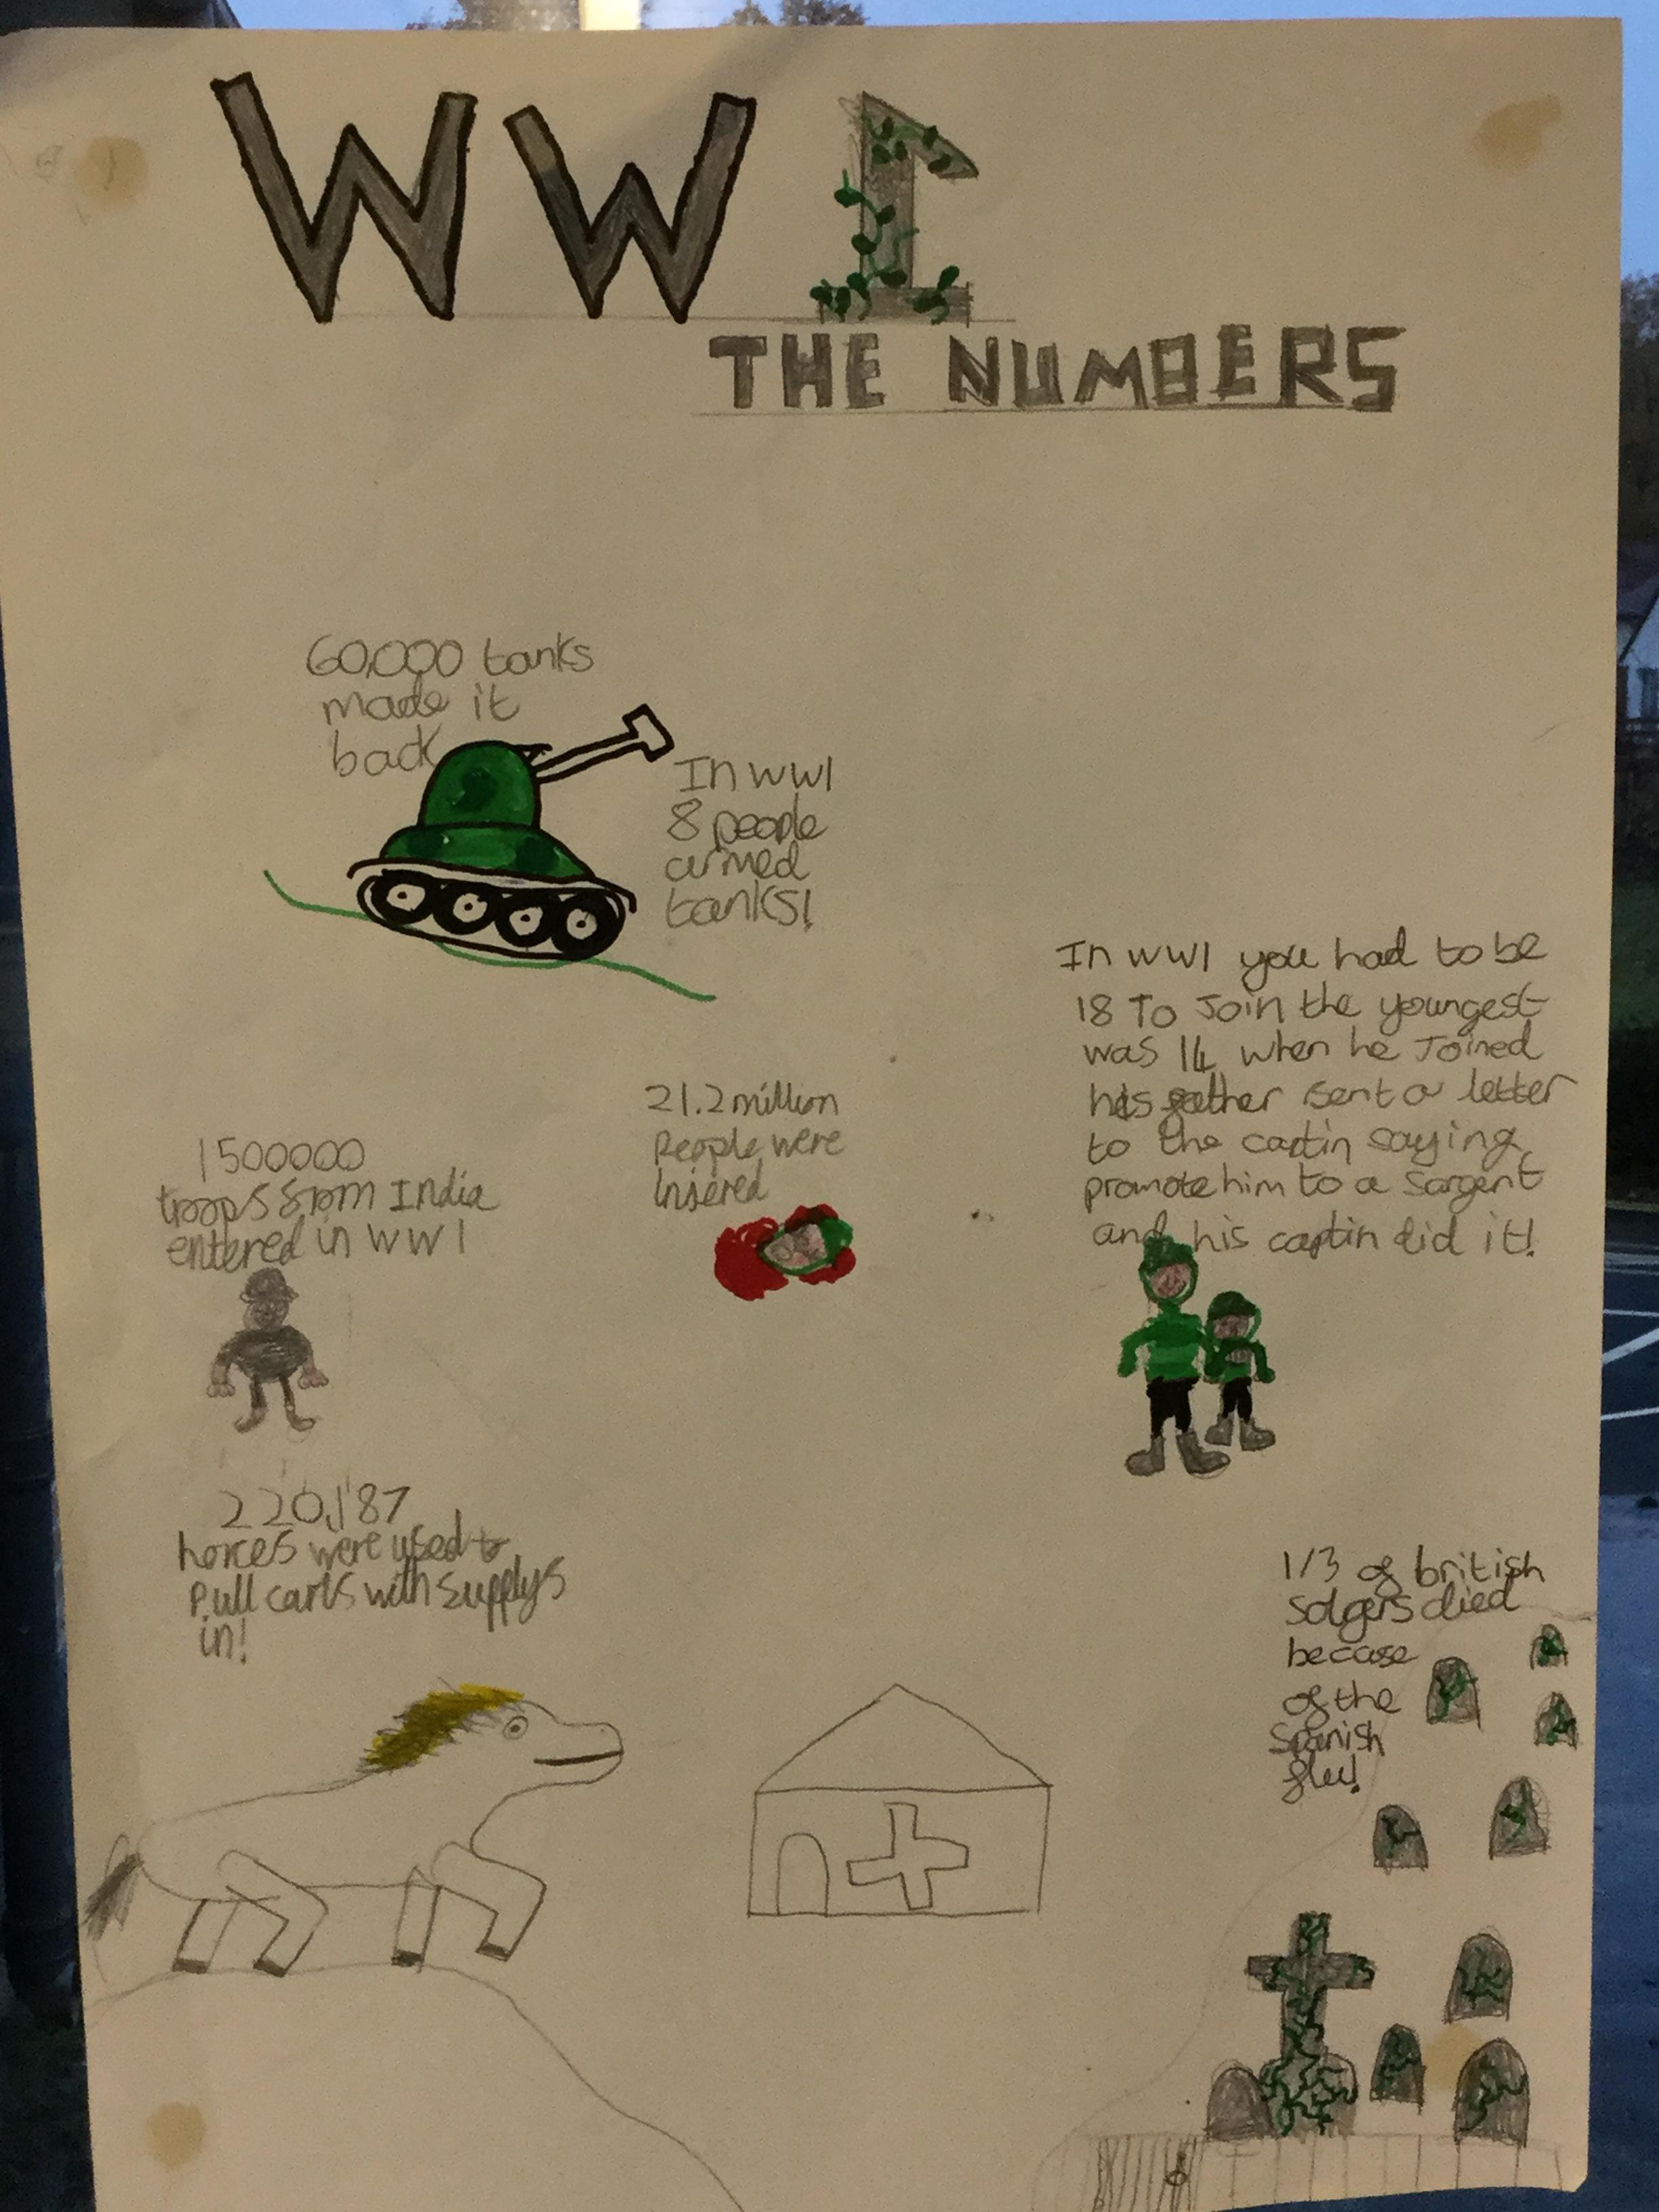 WW1
THE NUMBERS
60,000 tanks
made it
back
In WW1
8 people
armed
tanks!
In WW1 you had to be
18 To Join the youngest
was 14 when he Joined
his father sent a letter
to the captin saying
promote him to a Sargent
and his captin did it!
21.2 million
People were
Injered
1500000
troops from India
entered in WW1
220,187
horces were used to
Pull carts with supplys
in!
1/3 of british
Solgers died
becase
of the
Spanish
flu!